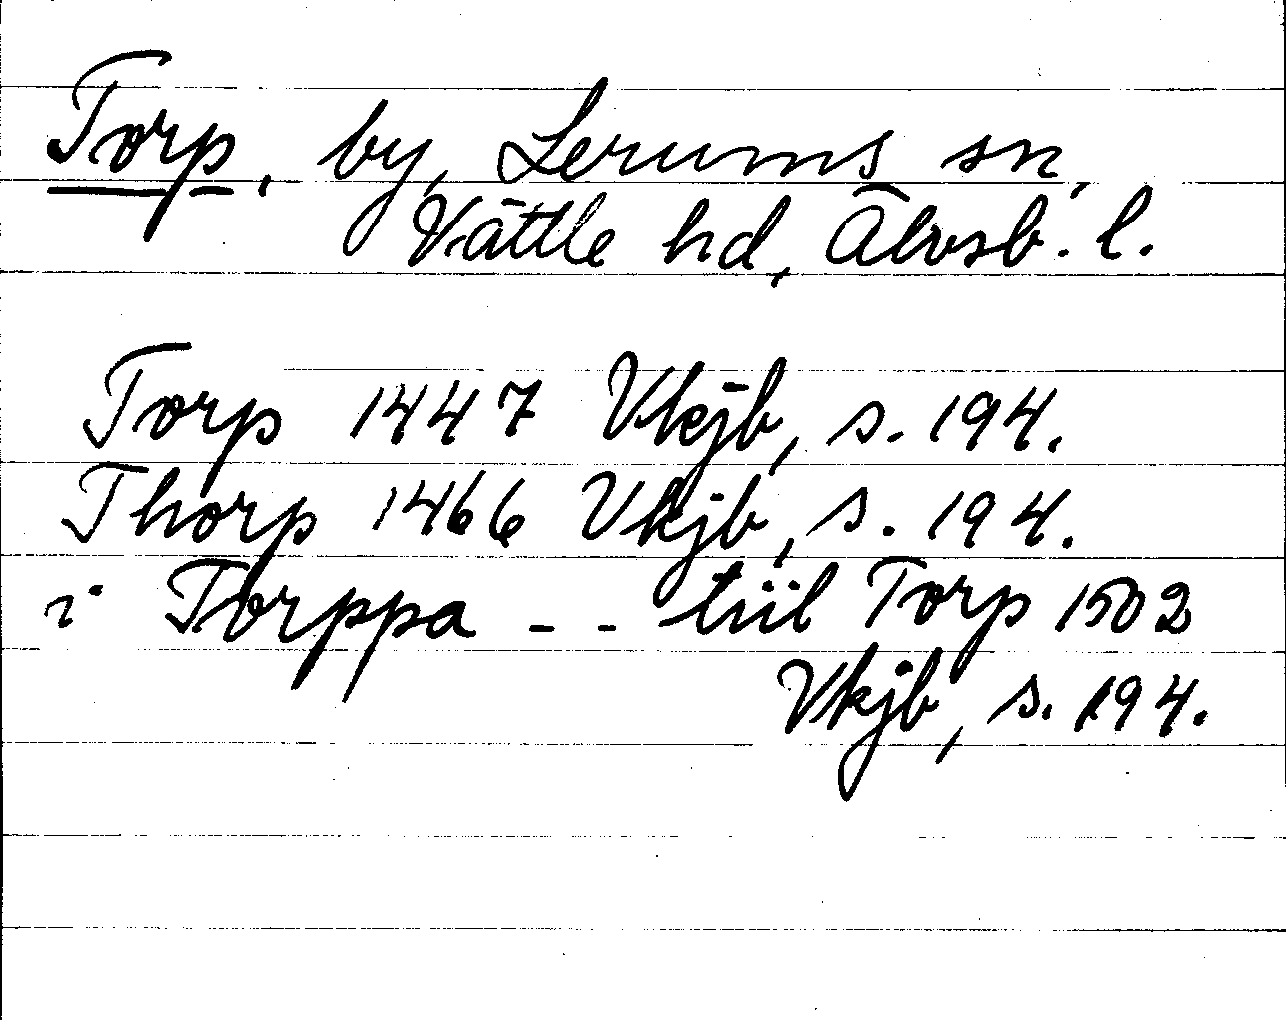 Torp, by, Lerums sn,
Vättle hd, Älvsb. l.
Torp 1447 Vkjb, s. 194.
Thorp 1466 Vkjb, s. 194.
i Torppa - - tiil Torp 1502
Vkjb, s. 194.